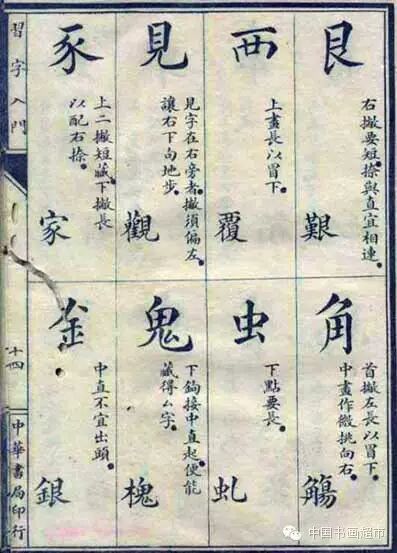 習字入門
艮
右撇要短。捺與直宜相連。
艱
西
上畫長以冒下。
覆
見
見字在右旁者。撇須偏左。
讓右下向地步。
觀
豕
上二撇短藏。下撇長
以配右捺。
家
角
首撇左長以冒下。
中畫作微挑向右。
觴
虫
下點要長。
虬
鬼
下鉤接中直起。便能
藏得厶字。
槐
金
中直不宜出頭。
銀
十四
中華書局印行
中国书画超市